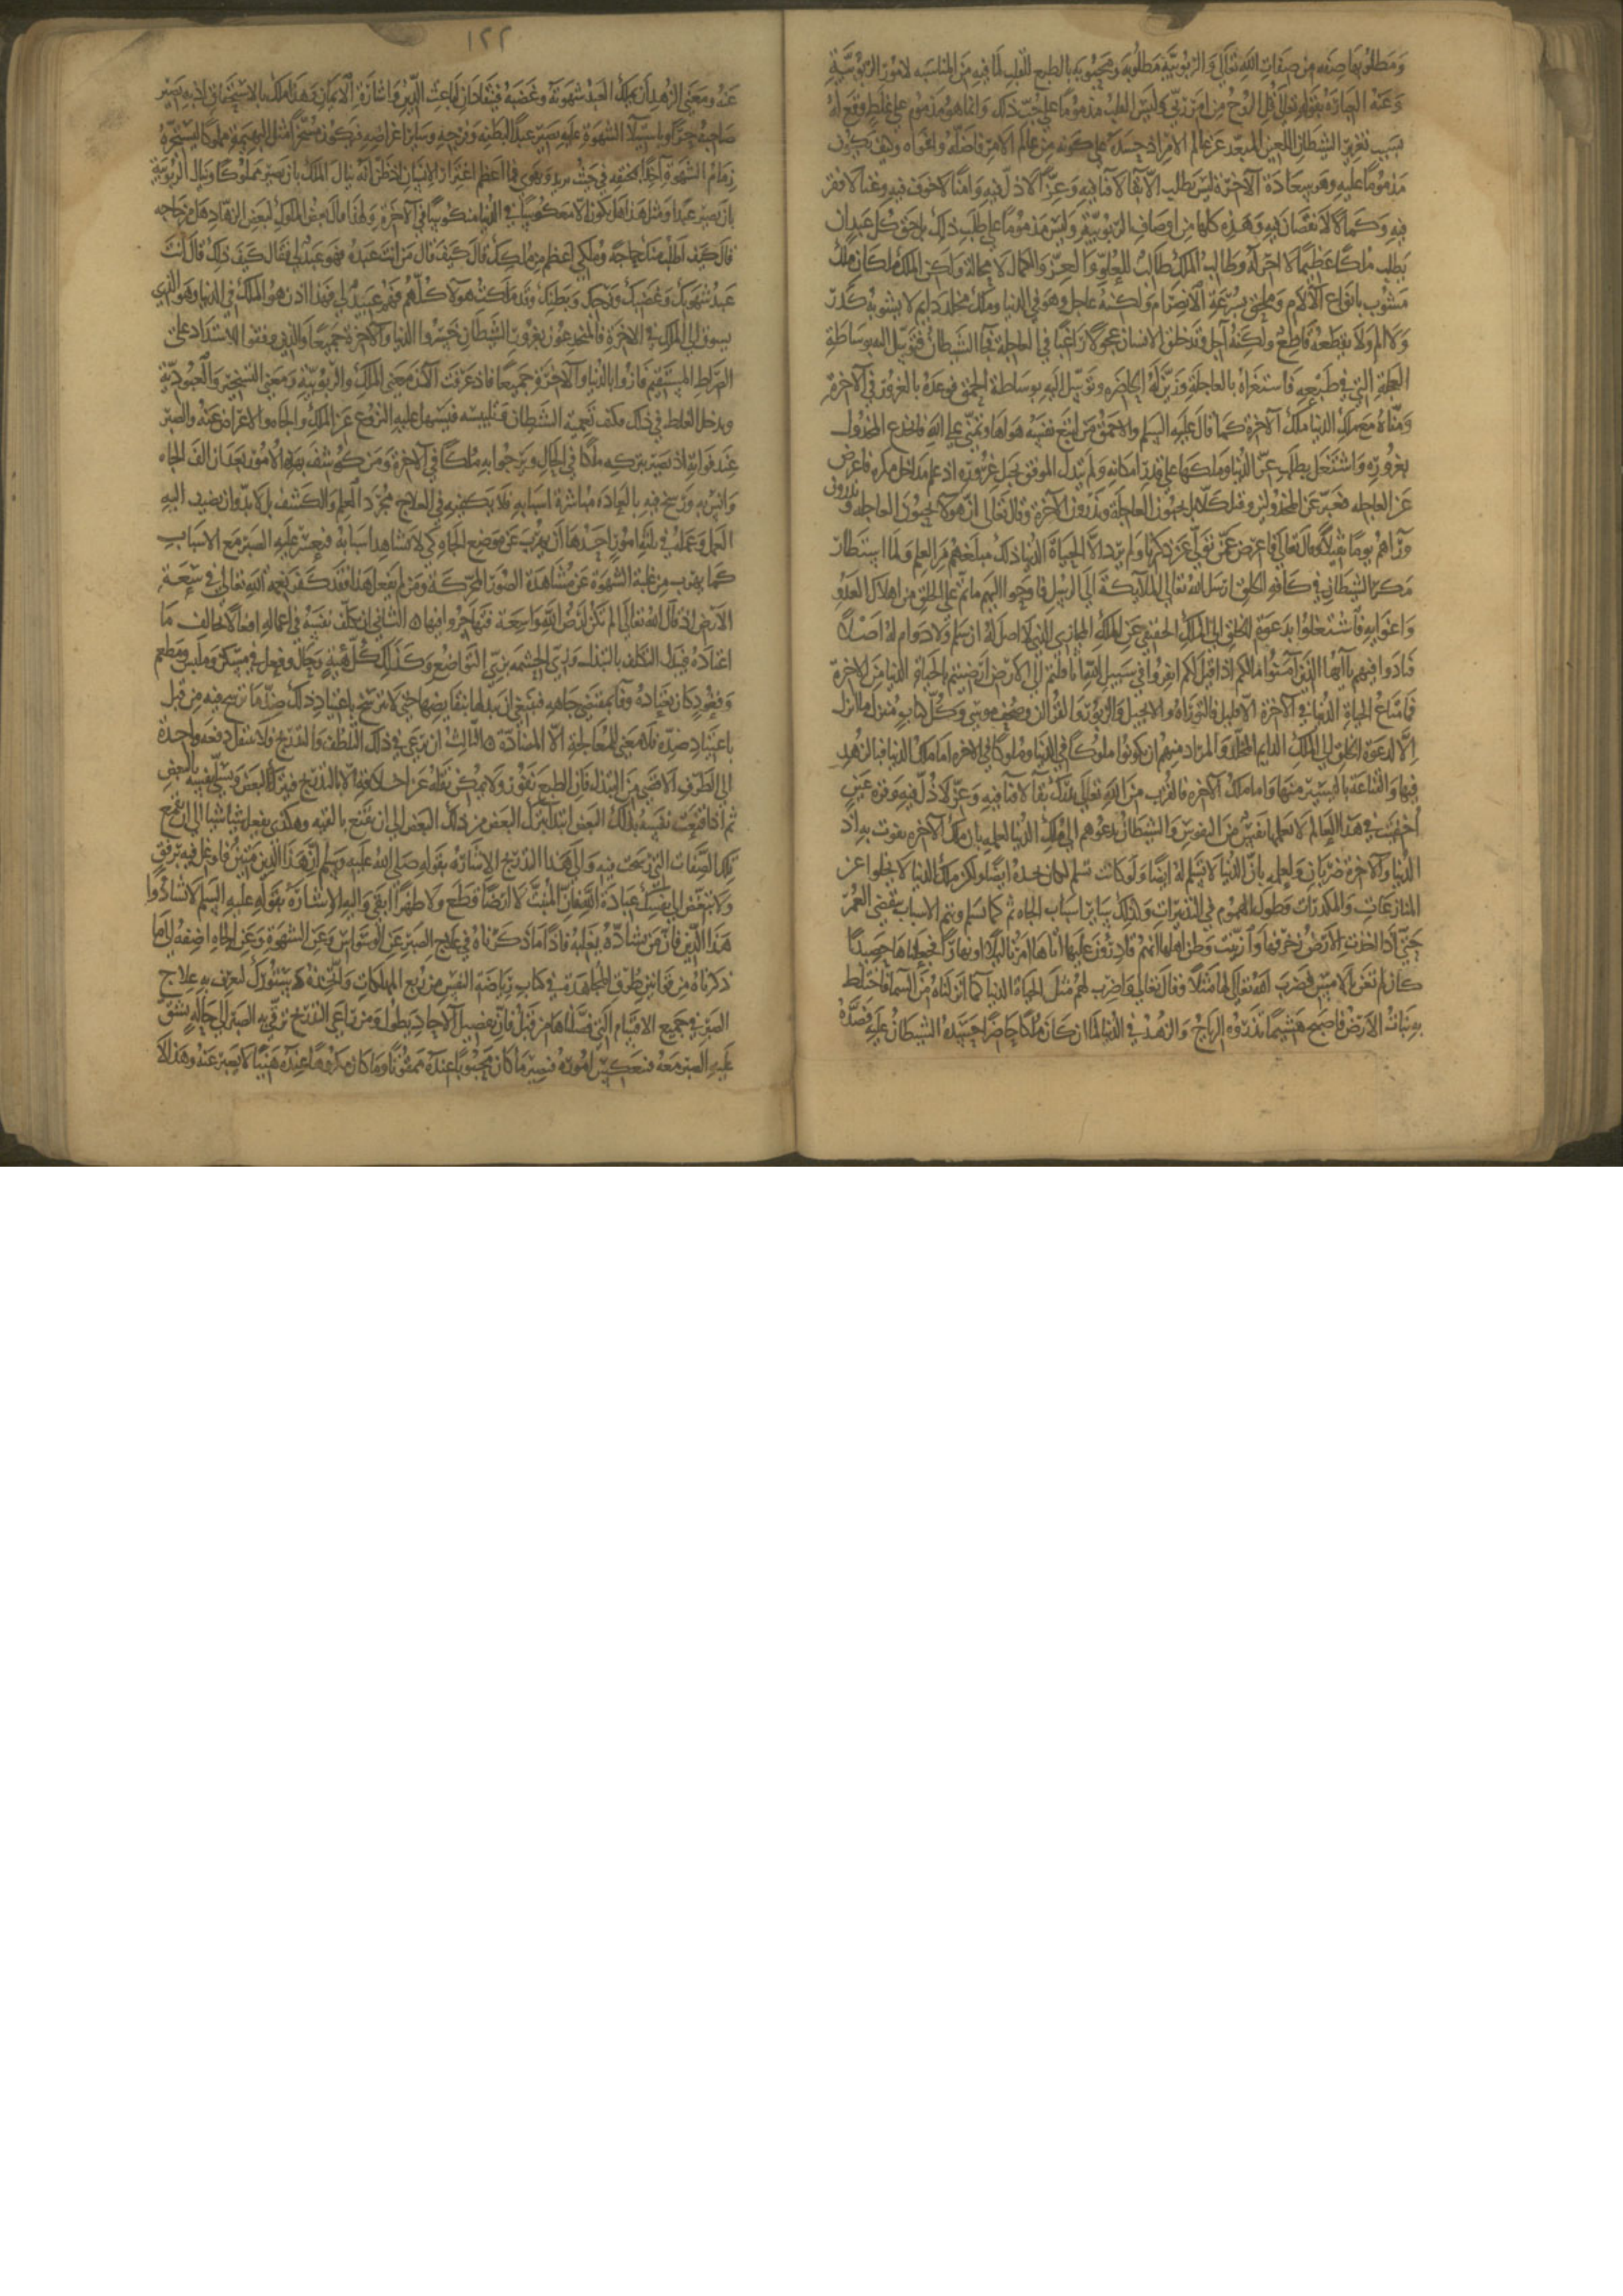 ومطلوبها صفه من صفات الله تعالى والربوبية مطلوبة ومحبوبة بالطبع للقلب لما فيه من المناسبه لامور الربوبية
وعنه العبارة بقوله تعالى قل الروح من امر ربي وليس القلب مذموما على حبّ ذلك وانما هو مذموم على غلط وقع له
بسبب تغرير الشيطان اللعين المبعد عن عالم الامر اذ حسده على كونه من عالم الامر فاضله واغواه وكيف يكون
مذموما عليه وهو يسعادة الآخرة ليس يطلب الا بقا لا فنا فيه وعزّا لا ذل فيه وامنا لا خوف فيه وغنا لا فقر
فيه وكمالا لا نقصان فيه وهذه كلها من اوصاف الربوبية وليس مذموما على طلب ذلك بل حق كل عبد ان
يطلب ملكا عظيما لا اخر له وطالب الملك طالب للعلو والعز والكمال لا محالة ولكن الملك ملكان ملك
مشوب بانواع الآلام وملحق بسرعة الانصرام ولكنه عاجل وهو في الدنيا وملك مخلد دايم لا يشوبه كدر
ولا الم ولا يقطعه قاطع ولكنه آجل وقد خلق الانسان عجولا راغبا في العاجلة فجا الشيطان فتوسل اليه بوساطة
العجلة التي في طبعه فاستغراه بالعاجلة وزين له الحاضره وتوسل اليه بوساطة الحمق فوعده بالغرور في الآخرة
ومناه مع ملك الدنيا ملك الآخرة كما قال عليه السلم والاحمق من اتبع نفسه هواها وتمنى على الله فانخدع المخذول
بغروره واشتغل بطلب عز الدنيا وملكها على قدر امكانه ولم يتدل الموفق بحبل غروره اذ علم مداخل مكره فاعرض
عن العاجله فعبر عن المخذولين وقيل كلا بل تحبون العاجلة وتذرون الآخرة وقال تعالى ان هولا يحبون العاجله و يذرون
وراهم يوما ثقيلا وقال تعالى فاعرض عن من تولى عن ذكرنا ولم يرد الا الحياة الدنيا ذلك مبلغهم من العلم ولما استطار
مكر الشيطان في كافه الخلق ارسل الله تعالى الملايكة الى الرسل فاوحوا اليهم ما تم على الخلق من اهلاك العدو
واغوايه فاشتغلوا بدعوة الخلق الى الملك الحقيقي عن الملك المجازي الذي لا اصل له ان سلم ولا دوام له اصلا
فنادوا فيهم يا ايها الذين آمنوا مالكم اذا قيل لكم انفروا في سبيل الله اثاقلتم الى الارض ارضيتم بالحياة الدنيا من الاخرة
فما متاع الحياة الدنيا في الآخرة الا قليل فالتوراة والانجيل والزبور والقرآن وصحف موسى وكل كتاب منزل ما انزل
الا لدعوة الخلق الى الملك الدايم المخلد والمراد منهم ان يكونوا ملوكا في الدنيا وملوكا في الآخره اما ملك الدنيا فبالزهد
فيها والقناعة باليسير منها واما ملك الآخره فالقرب من الله تعالى يدرك بقا لا فنا فيه وعز لا ذل فيه وقرة عين
اخفيت في هذا العالم لا تعلمها نفس من النفوس والشيطان يدعوهم الى ملك الدنيا لعلمه بان ملك الآخره يفوت به اذ
الدنيا والآخرة ضرتان ولعلمه بان الدنيا لا تسلم له ايضا ولو كانت تسلم لكان يحسده ايضا ولكن ملك الدنيا لا يخلوا عن
المنازعات والمكدرات وطول الهموم في التدبيرات ولذلك ساير اسباب الجاه ثم كما تسلم وتتم الاسباب ينقضي العمر
حتى اذا اخذت الارض زخرفها وازينت وظن اهلها انهم قادرون عليها اتاها امرنا ليلا او نهارا فجعلناها حصيدا
كان لم تغن بالامس فضرب الله تعالى لها مثلا وقال تعالى واضرب لهم مثل الحياة الدنيا كما انزلناه من السما فاختلط
به نبات الارض فاصبح هشيما تذروه الرياح والزهد في الدنيا لما ان كان ملكا حاضرا حسده الشيطان عليه فصده
١٢٢
عنه ومعنى الزهد ان يملك العبد شهوته وغضبه فينقادان لباعث الدين واشارة الايمان وهذا ملك بالاستحقاق اذ به يصير
صاحبه حرا وباستيلا الشهوة عليه يصير عبدا لبطنه وفرجه وساير اغراضه فيكون مسخرا مثل البهيمة مملوكا يستجره
زمام الشهوة آخذا بمخنقه الى حيث يريد ويهوى فما اعظم اغترار الانسان اذ ظن انه ينال الملك بان يصير مملوكا وينال الربوبية
بان يصير عبدا ومثل هذا هل يكون الا معكوسا في الدنيا منكوسا في الآخرة ولهذا قال بعض الملوك لبعض الزهاد هل من حاجه
قال كيف اطلب منك حاجة وملكي اعظم من ملكك قال كيف قال من انت عبده فهو عبد لي فقال كيف ذلك قال انت
عبد شهوتك وغضبك وفرجك وبطنك وقد ملكت هولا كلهم فهم عبيد لي فهذا اذن هو الملك في الدنيا وهو الذي
يسوق الى الملك في الاخرة فالمنخدعون بغرور الشيطان خسروا الدنيا والآخرة جميعا والذين وفقوا للاستداد على
الصراط المستقيم فازوا بالدنيا والآخرة جميعا فاذ عرفت الآن معنى الملك والربوبية ومعنى التسخير والعبودية
ومدخل الغلط في ذلك وكيف تعمية الشيطان وتلبيسه فيسهل عليه النزوع عن الملك والجاه والاعراض عنه والصبر
عند فواته اذ تصير بتركه ملكا في الحال وترجوا به ملكا في الآخرة ومن كوشف بهذه الامور بعد ان الف الجاه
وانس به ورسخ فيه بالعادة مباشرة اسبابه فلا يكفيه في العلاج مجرد العلم والكشف بل لا بد وان يضيف اليه
العمل وعمله في ثلثة امور احدها ان يهرب عن موضع الجاه كي لا يشاهد اسبابه فيعسر عليه الصبر مع الاسباب
كما يهرب من غلبة الشهوة عن مشاهدة الصور المحركة ومن لم يفعل هذا فقد كفر نعمة الله تعالى في سعة
الارض اذ قال الله تعالى الم تكن ارض الله واسعة فتهاجروا فيها ٥ الثاني ان يكلف نفسه في اعماله افعالا تخالف ما
اعتاده فيبدل التكلف بالتبذل وزي الحشمه بزي التواضع وكذلك كل هيئة وحال وفعل في مسكن وملبس ومطعم
وقعود كان يعتاده وفا بمقتضى جاهه فينبغي ان يبدلها بنقايضها حتى لا يترسخ باعتياد ذلك ضد ما رسخ فيه من قبل
باعتياد ضده فلا معنى للمعالجة الا المضادة ٥ الثالث ان يراعي في ذلك التلطف والتدريج ولا ينتقل دفعه واحدة
الى الطرف الاقصى من التبذل فان الطبع نفور ولا يمكن نقله عن اخلاقه الا بالتدريج فيترك البعض ويسلي نفسه بالبعض
ثم اذا قنعت نفسه بذلك البعض ابتدا بترك البعض من ذلك البعض الى ان يقنع بالبقيه وهكذى يفعل شيا شيا الى ان يقمع
تلك الصفات التي رسخت فيه والى هذا التدريج الاشارة بقوله صلى الله عليه وسلم ان هذا الدين متين فاوغل فيه برفق
ولا تبغض الى نفسك عبادة الله فان المنبت لا ارضا قطع ولا ظهرا ابقى واليه الاشارة بقوله عليه السلم لا تشادوا
هذا الدين فان من يشاده يغلبه فاذا ما ذكرناه في علاج الصبر عن الوسواس وعن الشهوة وعن الجاه اضفه الى ما
ذكرناه من قوانين طرق المجاهده في كتاب رياضة النفس من ربع المهلكات واتخذه دستورك لتعرف به علاج
الصبر في جميع الاقسام التي فصلناها من قبل فان تفصيل الآحاد يطول ومن راعى التدريج ترقى به الصبر الى حال يشق
عليه الصبر معه فتنعكس اموره فيصير ما كان محبوبا عنده ممقوتا وما كان مكروها عنده هنيئا لا يصبر عنه وهذا لا